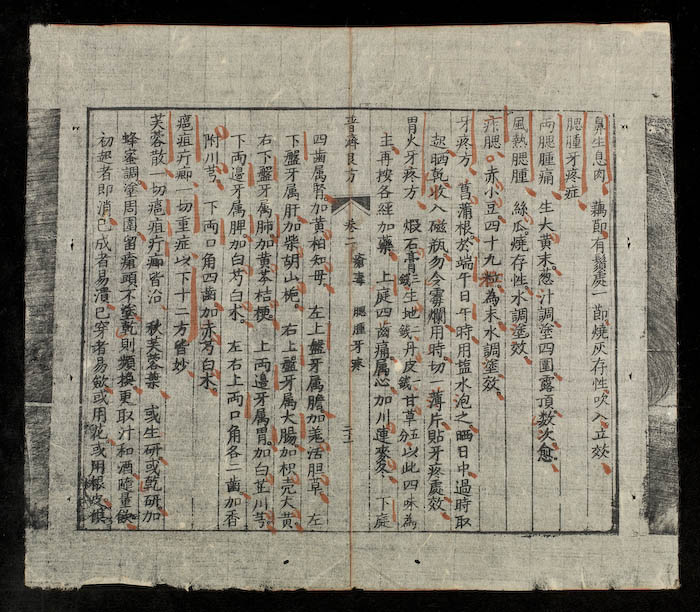 鼻生息肉 藕節有鬚處一節燒灰存性吹入立效
腮腫牙疼症
両腮腫痛 生大黃末葱汁調塗四圍露頂数次愈
風熱腮腫 絲瓜燒存性水調塗效
痄腮 赤小豆四十九粒為末水調塗效
牙疼方 菖蒲根於端午日午時用塩水泡之晒日中過時取
起晒乾收入磁瓶勿令霉爛用時切一薄片貼牙疼處效
胃火牙疼方 煅石膏三錢生地二錢丹皮錢甘草五分以此四味為
主再按各經加藥 上庭四齒痛属心加川連麥冬 下庭
普濟良方 卷二 腮腫牙寒
四齒属腎加黃柏知母 左上盤牙属膽加羗活胆草 左
下盤牙属肝加柴胡山梔 右上盤牙属大腸加枳壳大黃
右下盤牙属肺加黃芩桔梗 上両邊牙属胃加白芷川芎
下両邊牙属脾加白芍白朮 左右上両口角各二齒加香
附川芎 下両口角四齒加赤芍白朮
瘡疽疔癤一切重症以下十二方皆妙
芙蓉散一切瘡疽疔癤皆治 秋芙蓉葉 或生研或乾研加
蜂蜜調塗周圍留瘡頭不塗乾則頻換更取汁和酒隨量飲
初起者即消已成者易潰已穿者易斂或用花或用根皮俱